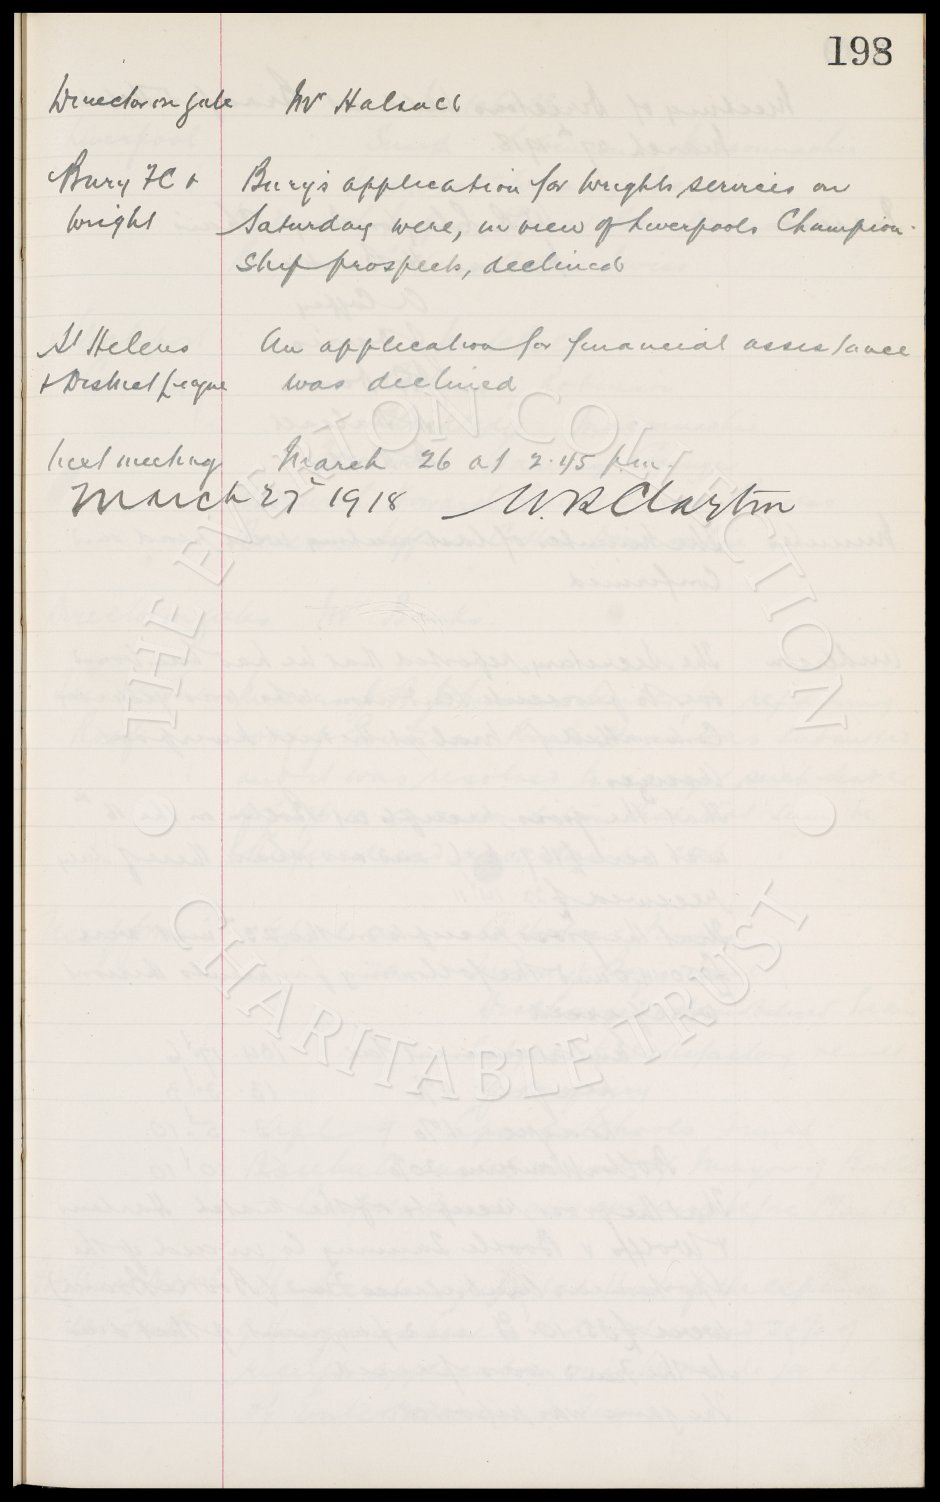 198
Director on gate Mr Halsall
Bury FC & Bury's application for Wrights services on
Wright Saturday were, in view of Liverpools Champion-
ship prospects, declined
St Helens An application for financial assistance
& District League was declined
Next meeting March 26 at 2.45 p.m.
March 27 1918 W.R. Clayton
THE EVERTON COLLECTION
CHARITABLE TRUST